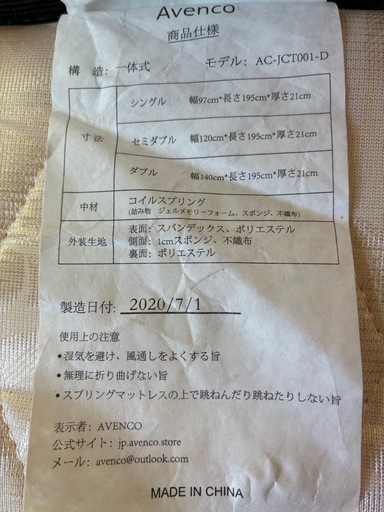 Avenco
商品仕様
構 造: 一体式 モデル: AC-JCT001-D
寸 法
シングル 幅97cm*長さ195cm*厚さ21cm
セミダブル 幅120cm*長さ195cm*厚さ21cm
ダブル 幅140cm*長さ195cm*厚さ21cm
中材 コイルスプリング
(詰め物 ジェルメモリーフォーム、スポンジ、不織布)
外装生地
表面: スパンデックス、ポリエステル
側面: 1cmスポンジ、不織布
裏面: ポリエステル
製造日付: 2020/7/1
使用上の注意
•湿気を避け、風通しをよくする旨
•無理に折り曲げない旨
•スプリングマットレスの上で跳ねんだり跳ねたりしない旨
表示者: AVENCO
公式サイト: jp.avenco.store
メール: avenco@outlook.com
MADE IN CHINA